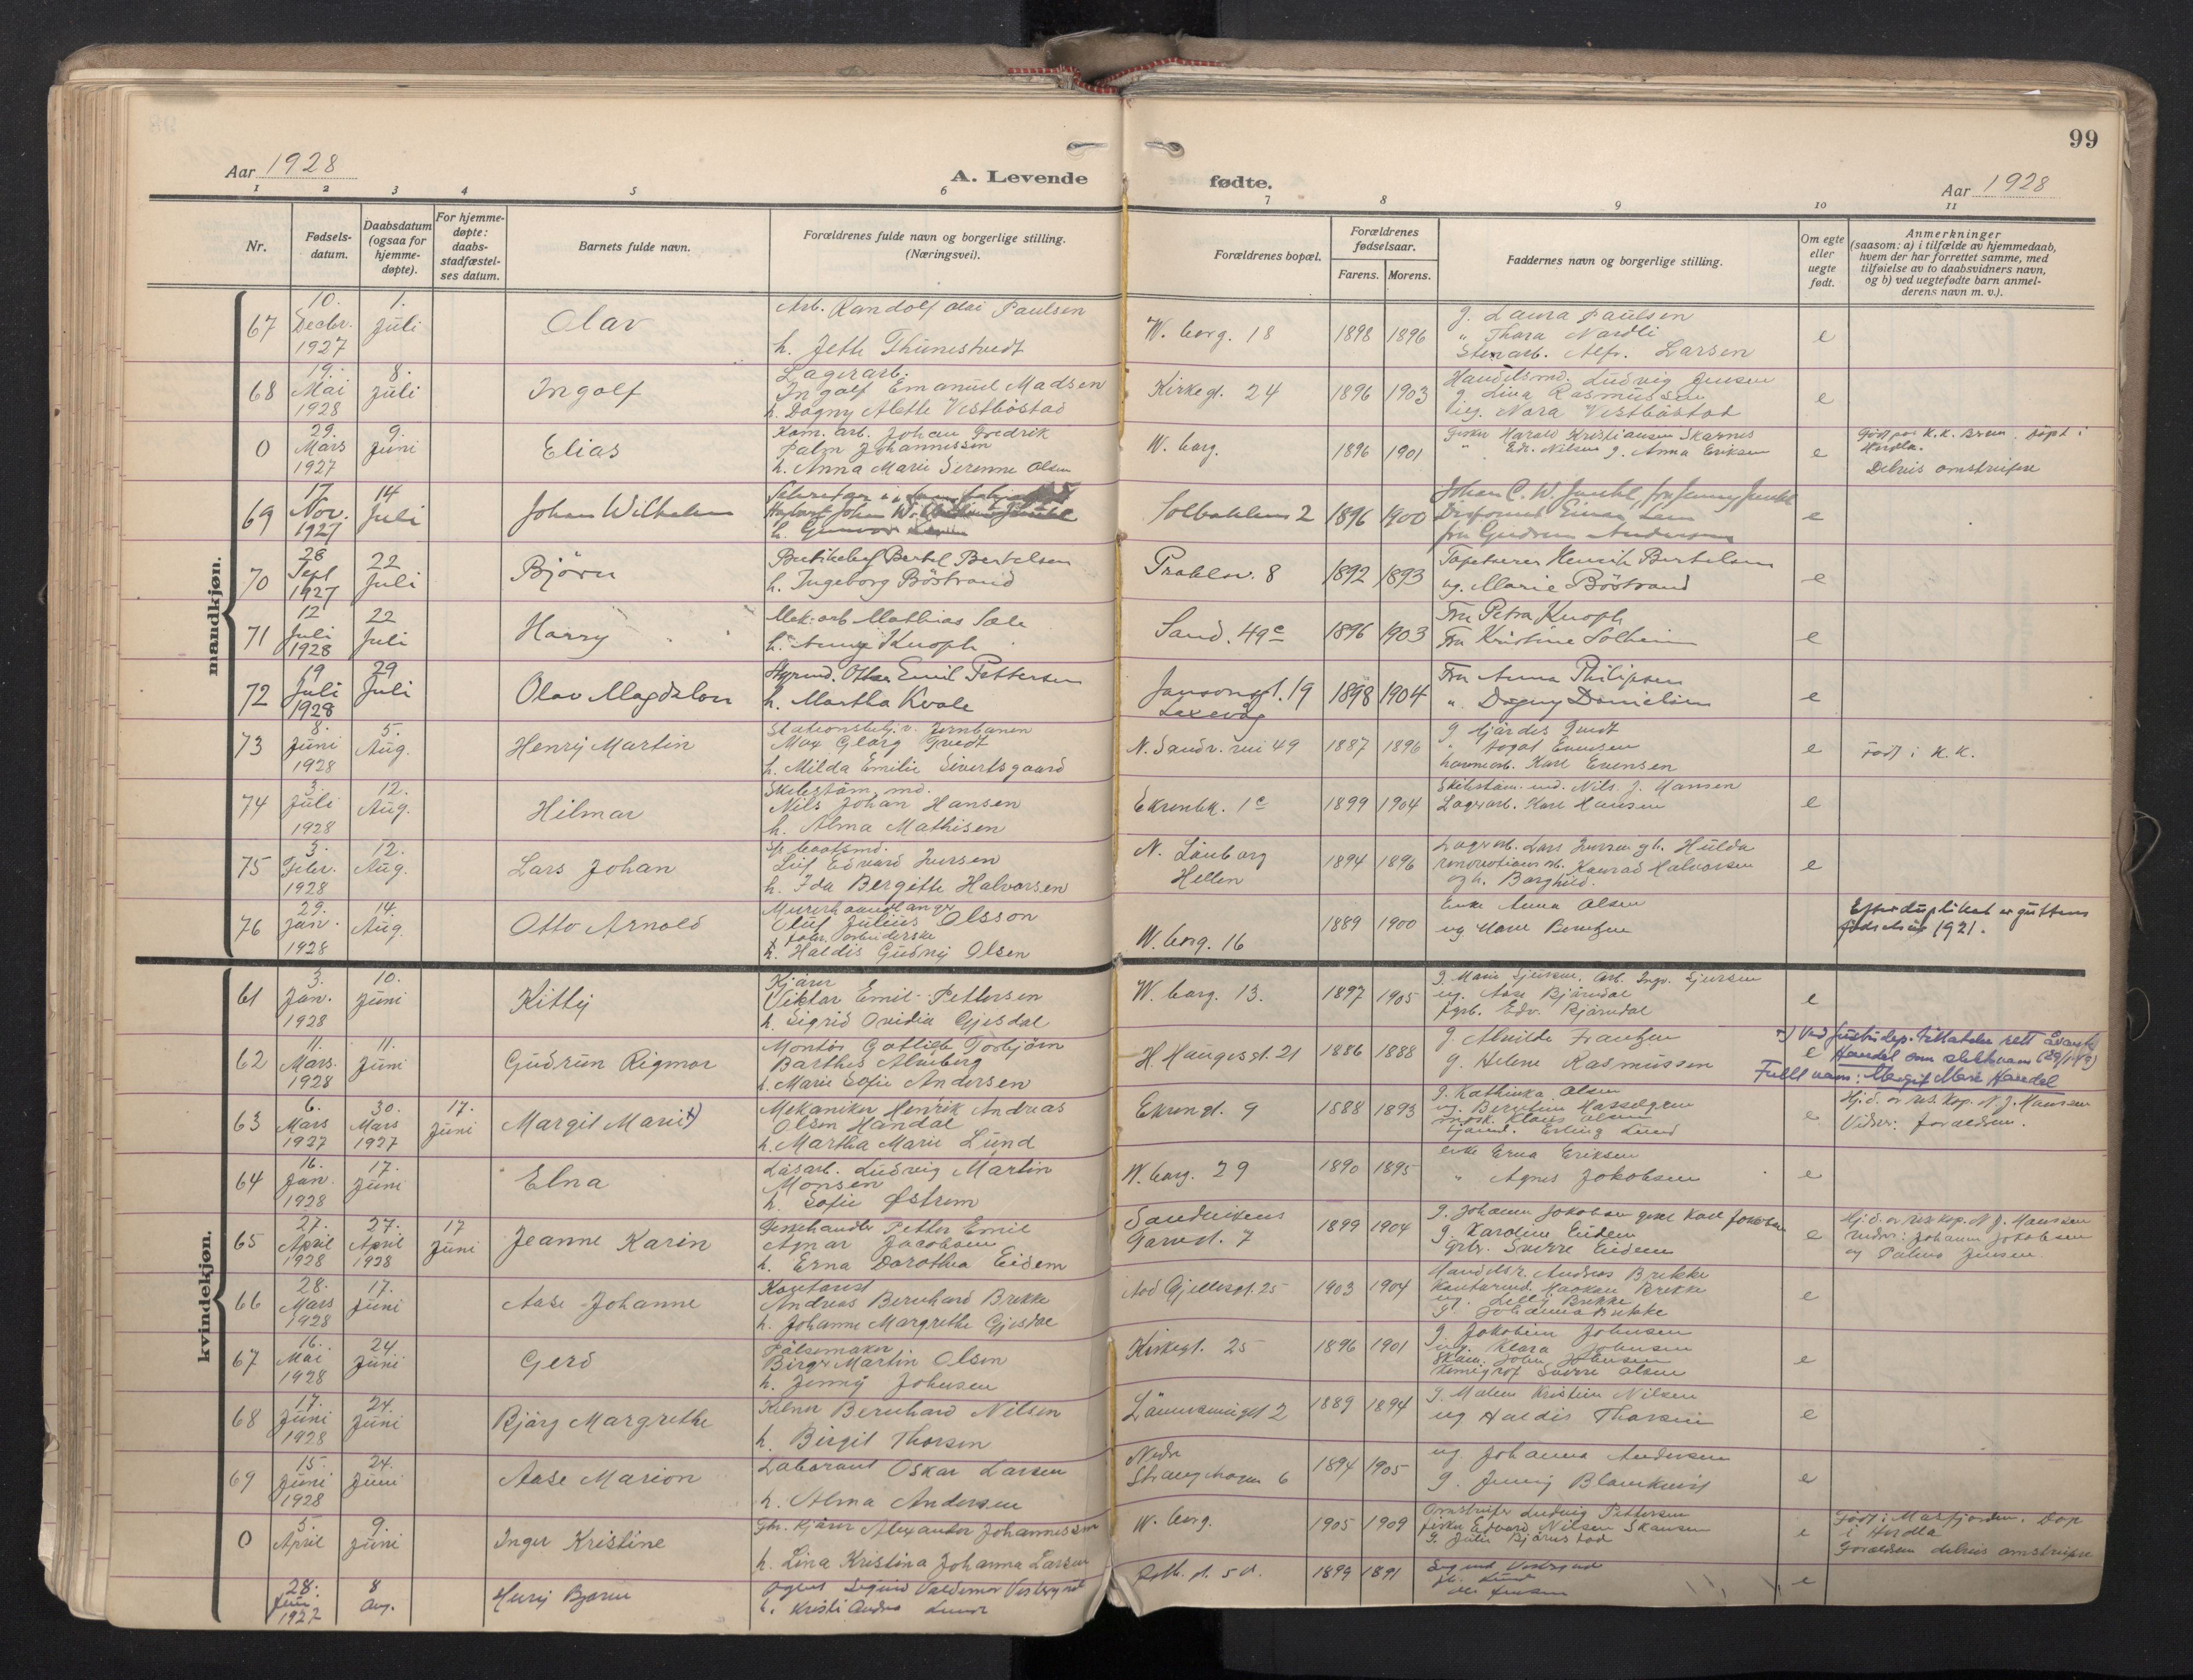 99
Aar 1928
A. Levende fødte.
Aar 1928
1 2 3 4 5 6 7 8 9 10 11
Nr.
Fødsels-
datum.
Daabsdatum
(ogsaa for
hjemme-
døpte).
For hjemme-
døpte:
daabs-
stadfæstel-
ses datum.
Barnets fulde navn.
Forældrenes fulde navn og borgerlige stilling.
(Næringsvei).
Forældrenes bopæl.
Forældrenes
fødselsaar.
Farens. Morens.
Faddernes navn og borgerlige stilling.
Om egte
eller
uegte
født.
Anmerkninger
(saasom: a) i tilfælde av hjemmedaab,
hvem der har forrettet samme, med
tilføielse av to daabsvidners navn,
og b) ved uegtefødte barn anmel-
derens navn m. v.).
mandkjøn.
67
10.
Decbr.
1927
1.
Juli
Olav
Arb. Randolf Olai Paulsen
h. Jette Thunestvedt
W. borg. 18
1898 1896
g. Laura Paulsen
" Thora Nordli
Stenarb. Alfr. Larsen
e
68
19.
Mai
1928
8.
Juli
Ingolf
Lagerarb.
Ingolf Emanuel Madsen
h. Dagny Alette Vestböstad
Kirkegt. 24
1896 1903
Handelsmd. Ludvig Jensen
g. Lina Rasmussen
ug. Nora Vestböstad
e
0
29.
Mars
1927
9.
Juni
Elias
Kom. arb. Johan Fredrik
Palm Johannessen
h. Anna Marie Serenne Olsen
W. borg.
1896 1901
Fisker Harald Kristiansen Skarnes
" Edv. Nilsen g. Anna Eriksen
e
Født paa K.K. Brem. Døpt i
Herdla.
Delvis omstreifere
69
17
Nov.
1927
14
Juli
Johan Wilhelm
h. Gunvor
Solbakken 2
1896 1900
Johan C. W. Juuhl, fru Jenny Juuhl
fru Gudrun Andersen
e
70
28
Sept
1927
22
Juli
Björn
Butikchef Bertel Bertelsen
h. Ingeborg Böstrand
Prahlsv. 8
1892 1893
Tapetserer Henrik Bertelsen
ug. Marie Böstrand
e
71
12
Juli
1928
22
Juli
Harry
Mek. arb Mathias Sæle
h. Anny Knoph
Sand. 49c
1896 1903
Fru Petra Knoph
Fru Kristine Solheim
e
72
19
Juli
1928
29
Juli
Olav Magdalon
Styrmd. Ottar Emil Pettersen
h. Martha Kvale
Jansonsgt. 19
Laxevåg
1898 1904
Fru Anna Philipsen
" Dagny Danielsen
e
73
8.
Juni
1928
5.
Aug.
Henry Martin
Stationsbetj. v. Jernbanen
Max Georg Quedt
h. Milda Emilie Sivertsgaard
N. Sandv. vei 49
1887 1896
g Hjördis Quedt
" Aagot Evensen
havnearb. Karl Evensen
e
Født i K. K.
74
3.
Juli
1928
12.
Aug.
Hilmar
Skibstöm. md.
Nils Johan Hansen
h. Alma Mathisen
Ekrenbk. 1c
1899 1904
Skibstöm. md. Nils J. Hansen
Lagerarb. Karl Hansen
e
75
3.
Febr.
1928
12.
Aug.
Lars Johan
Baatsmd.
Leif Edvard Iversen
h. Ida Bergitte Halvorsen
N. Lönborg
Hellen
1894 1896
Lagerarb. Lars Iversen g h. Hulda
renovations arb. Konrad Halvorsen
og h. Borghild.
e
76
29.
Jan.
1928
14.
Aug.
Otto Arnold
Murerhaandlanger
Oluf Julius Olsson
h. Haldis Gudny Olsen
W. borg. 16
1889 1900
Enke Anna Olsen
ug. Marie Berntzen
Efter duplikat er guttens
födselsår 1921.
kvindekjøn.
61
3.
Jan.
1928
10.
Juni
Kitty
Kjörer
Viktor Emil Pettersen
h. Sigrid Ovidia Gjesdal
W. borg. 13.
1897 1905
g. Marie Sjursen. Arb. Ingv. Sjursen
ug. Aase Bjørndal
fyrb. Edv. Bjørndal
e
62
11.
Mars.
1928
11.
Juni
Gudrun Rigmor
Montör Gottlieb Torbjörn
Barthes Almeberg
h. Marie Sofie Andersen
H. Haugesgt. 21
1886 1888
g. Alvilde Frantzen
g. Helene Rasmussen
e
x) Ved justisdep. tillatelse rett å anta
Handel som slektsnavn (29/1-49)
Fullt navn: Margit Marie Handel
63
6.
Mars
1927
30.
Mars
1927
17.
Juni
Margit Marie x)
Mekaniker Henrik Andreas
Olsen Handal
h. Martha Marie Lund
Ekrengt. 9
1888 1893
g. Kathinka Olsen
ug. Bergitte Hasselgren
Erling Lund
e
Hj. d. av res. kap. N. J. Hansen
Vidner: foreldrene.
64
16.
Jan.
1928
17.
Juni
Elna
Losarb. Ludvig Martin
Monsen
h. Sofie Østrem
W. borg. 29
1890 1895
enke Erna Eriksen
" Agnes Jakobsen
e
65
27.
April
1928
27.
April
1928
17
Juni
Jeanne Karin
Petter Emil
Agnar Jacobsen
h. Erna Dorothea Eidem
Sandvikens
Garvest. 7
1899 1904
g. Johanne Jakobsen Karl Jakobsen
g. Karoline Eidem
Sverre Eidem
e
Hj. d. av res. kap. N. J. Hanssen
Vidner: Johanne Jakobsen
og Palma Jensen.
66
28.
Mars
1928
17.
Juni
Aase Johanne
Kontorist
Andreas Bernhard Brekke
h. Johanne Margrethe Gjesdal
Aad Gjellesgt. 25
1903 1904
Handelsr. Andreas Brekke
Kontormd. Haakon Brekke
ug. Lelly Brekke
g. Johanna Brekke
e
67
16.
Mai
1928
24.
Juni
Gerd
Pölsemaker
Birger Martin Olsen
h. Jenny Johnsen
Kirkegt. 25
1896 1901
g. Jakobine Johnsen
ug. Klara Johnsen
John Johnsen
Kemigraf Sverre Olsen
e
68
17.
Juni
1928
24.
Juni
Bjärg Margrethe
Kelner Bernhard Nilsen
h. Birgit Thorsen
2
1889 1894
g. Malene Kristine Nilsen
ug Haldis Thorsen
e
69
15.
Juni
1928
24.
Juni
Aase Marion
Laborant Oskar Larsen
h. Alma Andersen
Nedre
Strangehagen 6
1894 1905
ug Johanna Andersen
g. Jenny Blomkvist
e
0
5.
April
9.
Juni
Inger Kristine
Fhv. kjörer Alexander Johannessen
h. Lina Kristina Johanna Larsen
W. borg.
1905 1909
Omstreifer Ludvig Pettersen
fisker Edvard Nilsen Skausen
g. Julie Bjørnstad
e
Født i Masfjorden. Døp
i Herdla
Foreldrene delvis omstreifere
28.
Juni
1927
8
Aug.
Henry Bjarne
Sigurd Valdemar Vestrynd
h. Kristi Andrea Lund
1899 1891
Sigurd Vestrynd
Lund
Jensen
e